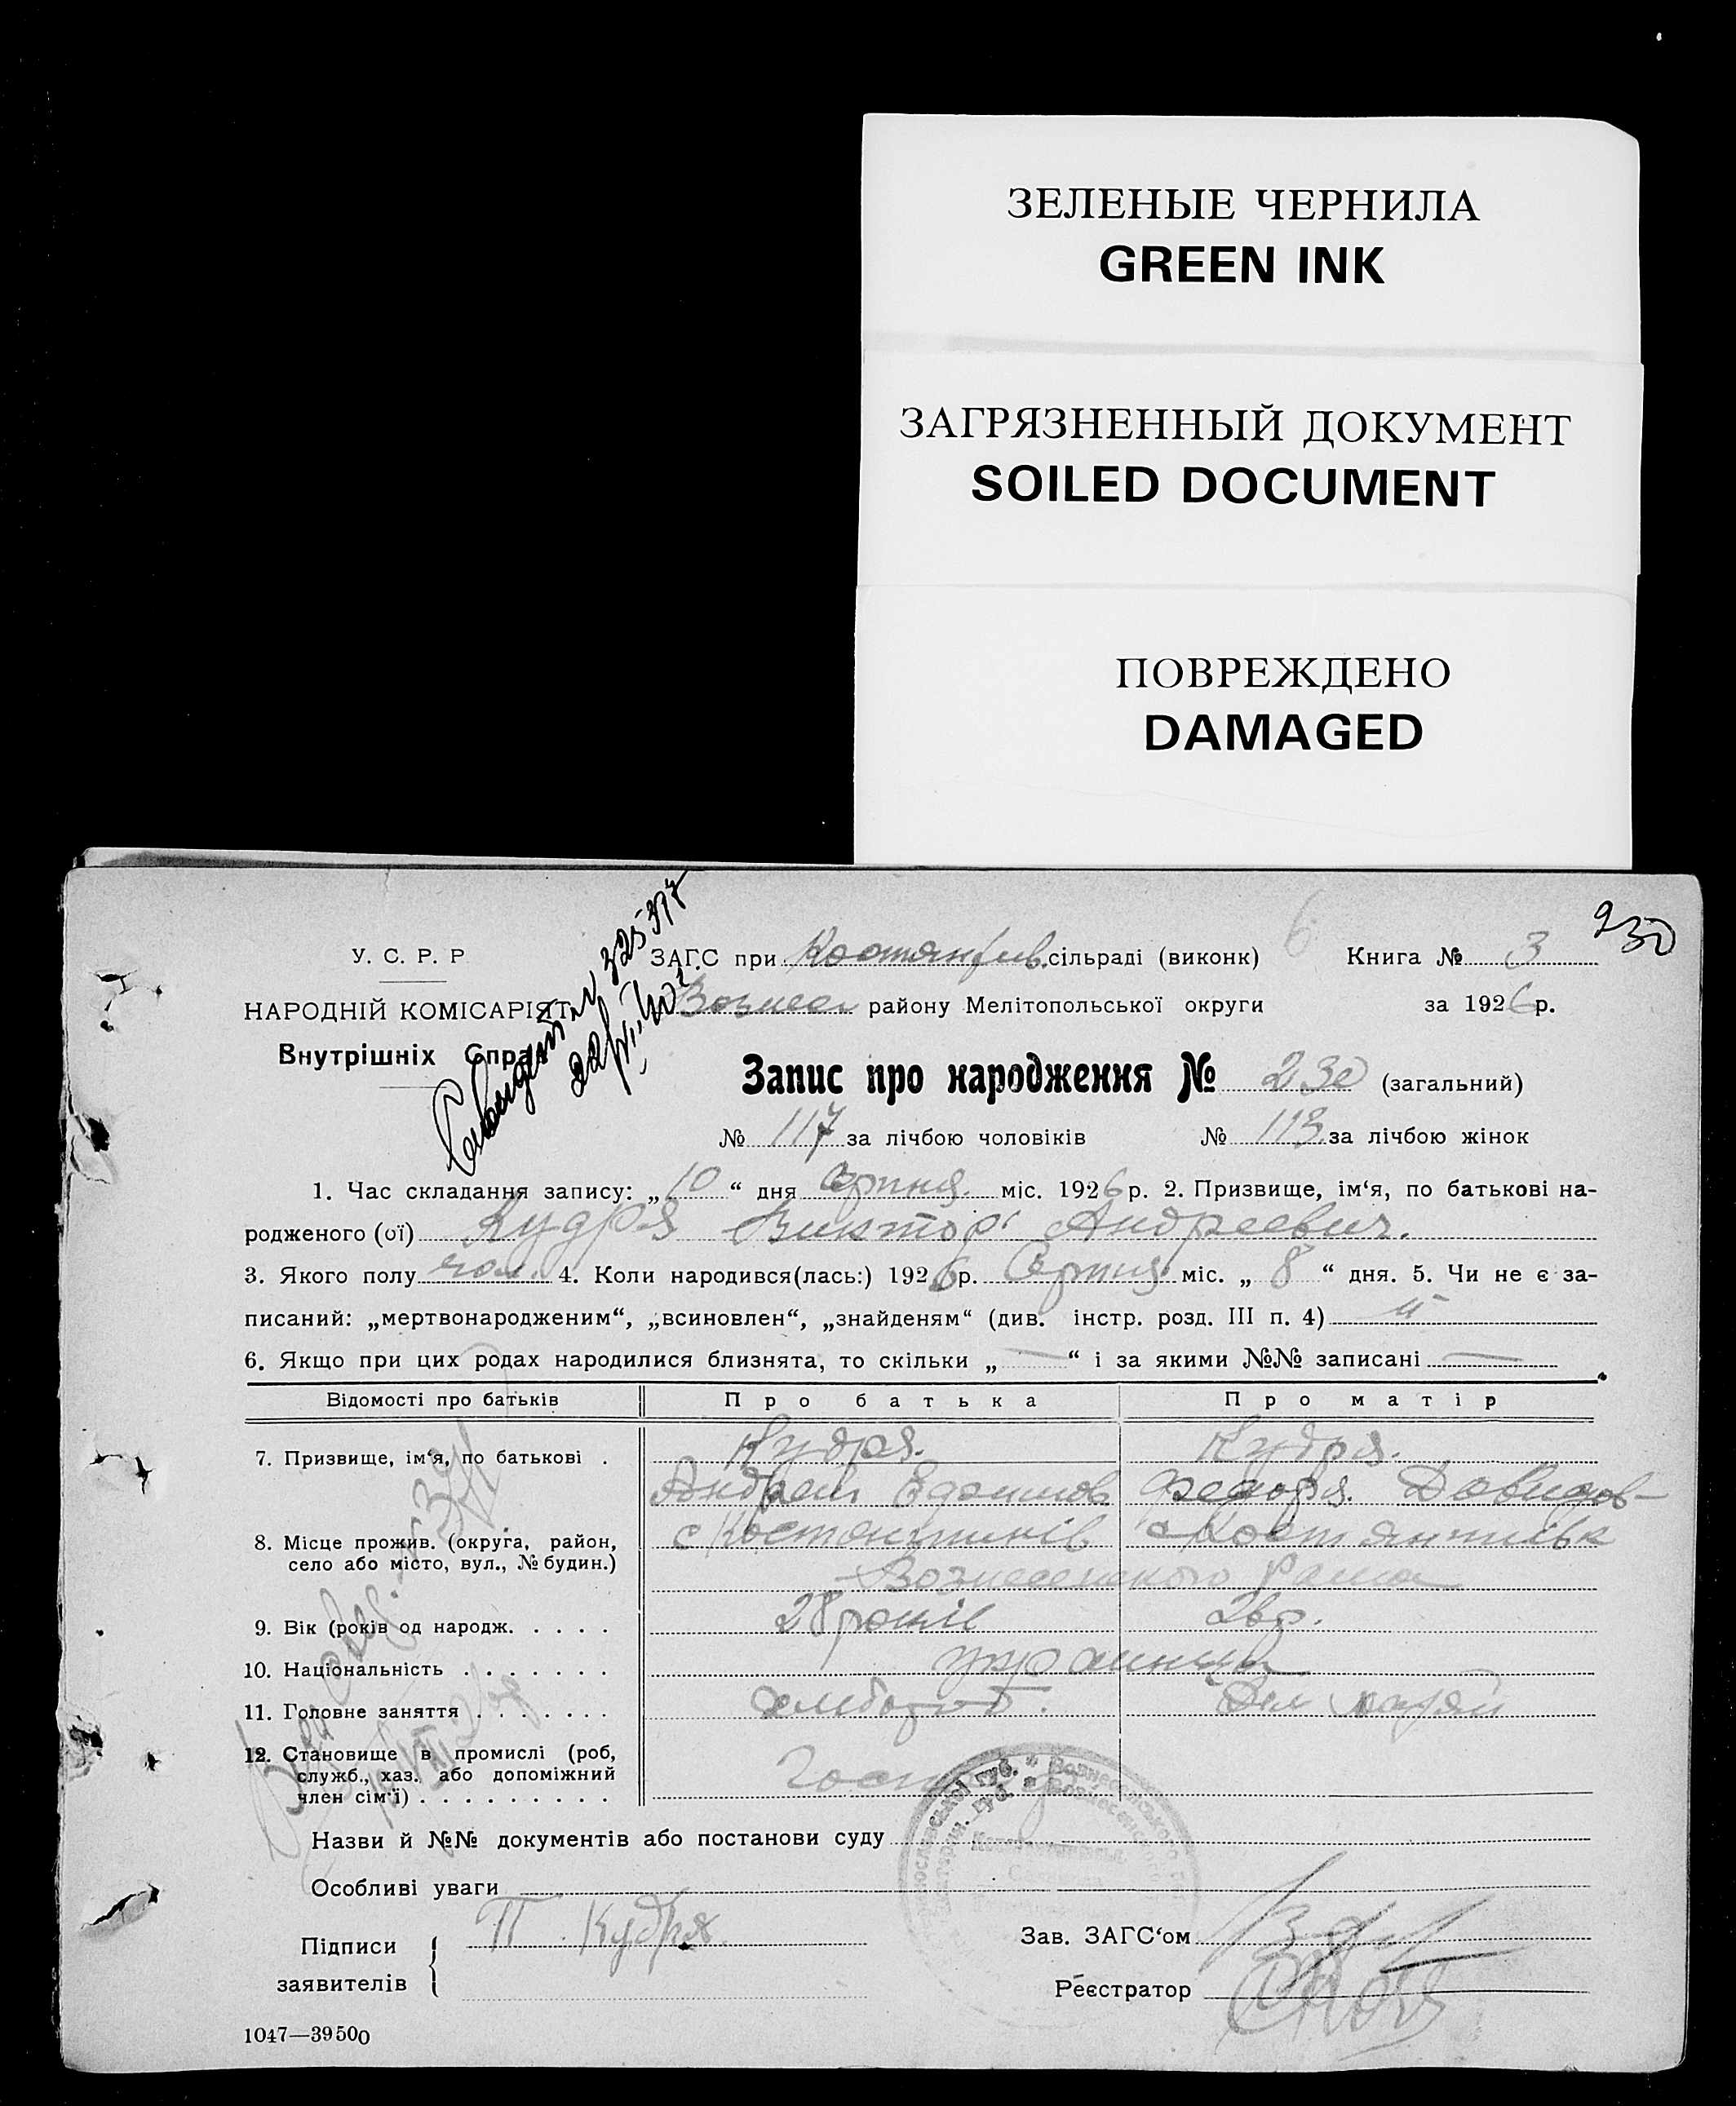 ЗЕЛЕНЫЕ ЧЕРНИЛА
GREEN INK
ЗАГРЯЗНЕННЫЙ ДОКУМЕНТ
SOILED DOCUMENT
ПОВРЕЖДЕНО
DAMAGED
230
У. С. Р. Р
НАРОДНІЙ КОМІСАРІЯТ
Внутрішніх Справ
ЗАГС при Костянтив. сільраді (виконк)
Книга № 3
Вознес районy Мелітопольської округи
за 1926 р.
Запис про народження № 230 (загальний)
№ 117 за лічбою чоловіків № 113 за лічбою жінок
1. Час складання запису: „10“ дня Серпня міс. 1926 р. 2. Призвище, ім‘я, по батькові на-
родженого (ої) Кудря Виктор Андреевич.
3. Якого полу чол. 4. Коли народився(лась:) 1926 р. Серпня міс. „8“ дня. 5. Чи не є за-
писаний: „мертвонародженим“, „всиновлен“, „знайденям“ (див. інстр. розд. III п. 4)
6. Якщо при цих родах народилися близнята, то скільки „—“ і за якими №№ записані —
Відомості про батьків Про батька Про матір
7. Призвище, ім‘я, по батькові . Кудря. Кудря.
Андрей Федора Давидов-
8. Місце прожив. (округа, район, с Костянтинів с Костянтинівк
село або місто, вул., № будин.)
Вознесенського Района
9. Вік (років од народж. . . . . 28 років
10. Національність . . . . . . . українці
11. Головне заняття . . . . . . . хлібороб.
12. Становище в промислі (роб,
служб., хаз. або допоміжний
член сім‘ї) . . . . . . . . . .
Назви й №№ документів або постанови суду
Особливі уваги
Підписи П. Кудря
заявителів
Зав. ЗАГС‘ом
Реєстратор
1047—39500